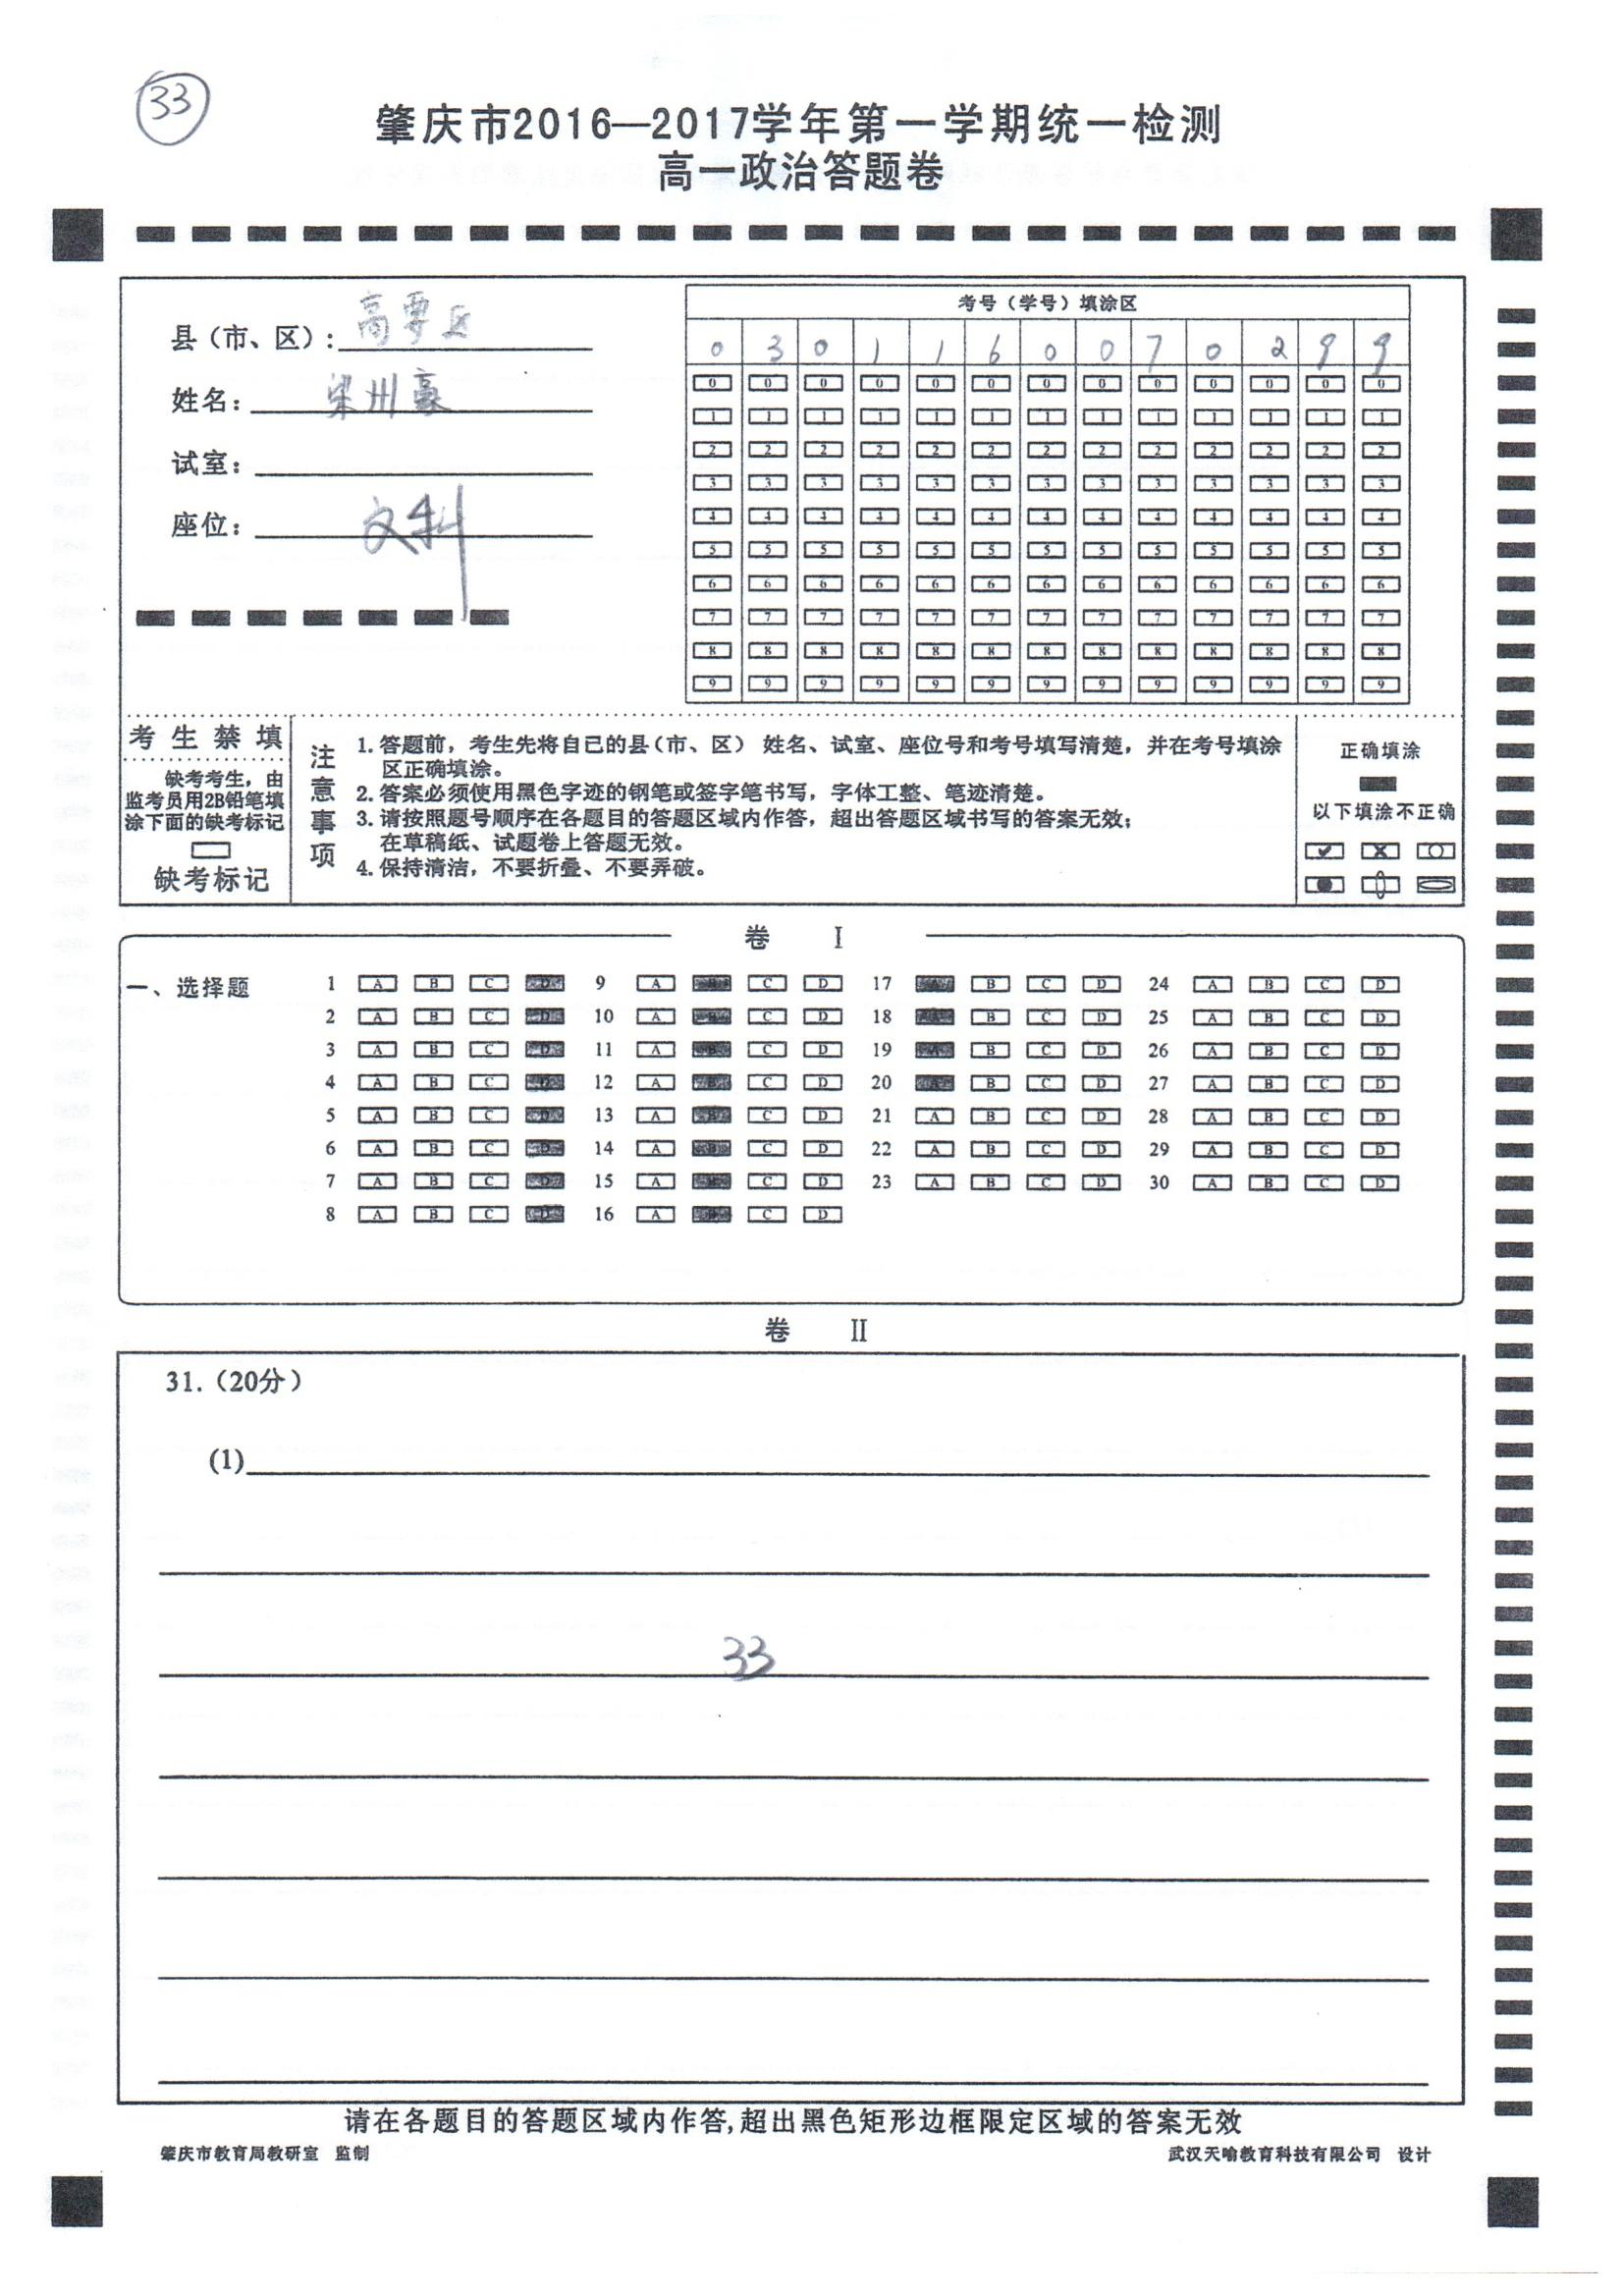 33
肇庆市2016—2017学年第一学期统一检测
高一政治答题卷
县（市、区）：高要区
姓名：梁州豪
试室：
座位：文科
考号（学号）填涂区
0 3 0 1 1 6 0 0 7 0 2 9 9
0 0 0 0 0 0 0 0 0 0 0 0 0
1 1 1 1 1 1 1 1 1 1 1 1 1
2 2 2 2 2 2 2 2 2 2 2 2 2
3 3 3 3 3 3 3 3 3 3 3 3 3
4 4 4 4 4 4 4 4 4 4 4 4 4
5 5 5 5 5 5 5 5 5 5 5 5 5
6 6 6 6 6 6 6 6 6 6 6 6 6
7 7 7 7 7 7 7 7 7 7 7 7 7
8 8 8 8 8 8 8 8 8 8 8 8 8
9 9 9 9 9 9 9 9 9 9 9 9 9
考生禁填
缺考考生，由
监考员用2B铅笔填
涂下面的缺考标记
缺考标记
注意事项
1. 答题前，考生先将自己的县（市、区） 姓名、试室、座位号和考号填写清楚，并在考号填涂
区正确填涂。
2. 答案必须使用黑色字迹的钢笔或签字笔书写，字体工整、笔迹清楚。
3. 请按照题号顺序在各题目的答题区域内作答，超出答题区域书写的答案无效；
在草稿纸、试题卷上答题无效。
4. 保持清洁，不要折叠、不要弄破。
正确填涂
以下填涂不正确
卷 I
一、选择题
1 A B C D 9 A B C D 17 A B C D 24 A B C D
2 A B C D 10 A B C D 18 A B C D 25 A B C D
3 A B C D 11 A B C D 19 A B C D 26 A B C D
4 A B C D 12 A B C D 20 A B C D 27 A B C D
5 A B C D 13 A B C D 21 A B C D 28 A B C D
6 A B C D 14 A B C D 22 A B C D 29 A B C D
7 A B C D 15 A B C D 23 A B C D 30 A B C D
8 A B C D 16 A B C D
卷 II
31.（20分）
(1)
33
请在各题目的答题区域内作答,超出黑色矩形边框限定区域的答案无效
肇庆市教育局教研室 监制
武汉天喻教育科技有限公司 设计